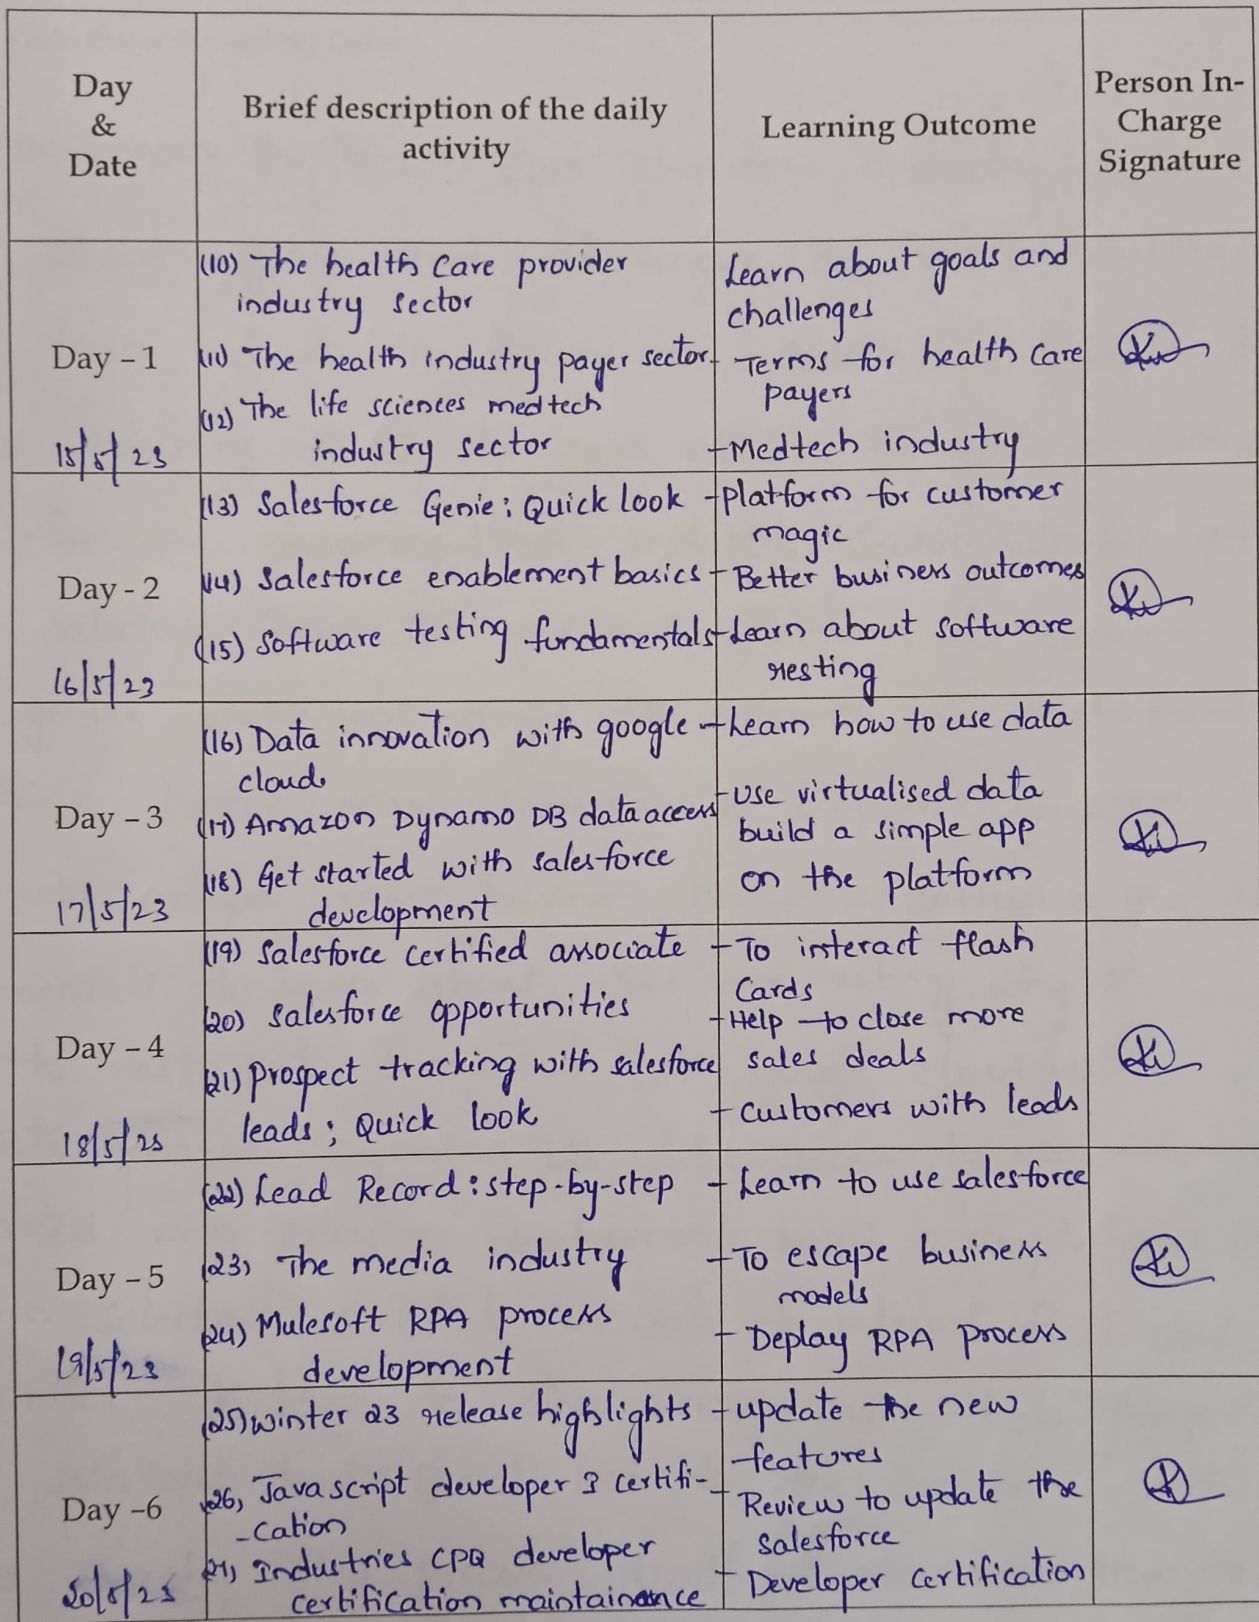 Day
&
Date
Brief description of the daily
activity
Learning Outcome
Person In-
Charge
Signature
Day - 1
15/5/23
(10) The health Care provider
industry sector
(11) The health industry payer sector
(12) The life sciences medtech
industry sector
Learn about goals and
challenges
- Terms for health Care
payers
- Medtech industry
Day - 2
16/5/23
(13) Salesforce Genie; Quick look
(14) Salesforce enablement basics
(15) Software testing fundamentals
- platform for customer
magic
- Better business outcomes
- Learn about software
resting
Day - 3
17/5/23
(16) Data innovation with google
cloud
(17) Amazon Dynamo DB data access
(18) Get started with salesforce
development
- Learn how to use data
- use virtualised data
build a simple app
on the platform
Day - 4
18/5/23
(19) Salesforce certified associate
(20) Salesforce opportunities
(21) Prospect tracking with salesforce
leads; Quick look
- To interact flash
Cards
- Help to close more
sales deals
- customers with leads
Day - 5
19/5/23
(22) Lead Record: step-by-step
(23) The media industry
(24) Mulesoft RPA process
development
- Learn to use salesforce
- To escape business
models
- Deplay RPA process
Day -6
20/5/23
(25) winter 23 release highlights
(26) Javascript developer I certifi-
-cation
(27) Industries CPQ developer
certification maintainance
- update the new
features
- Review to update the
salesforce
- Developer certification